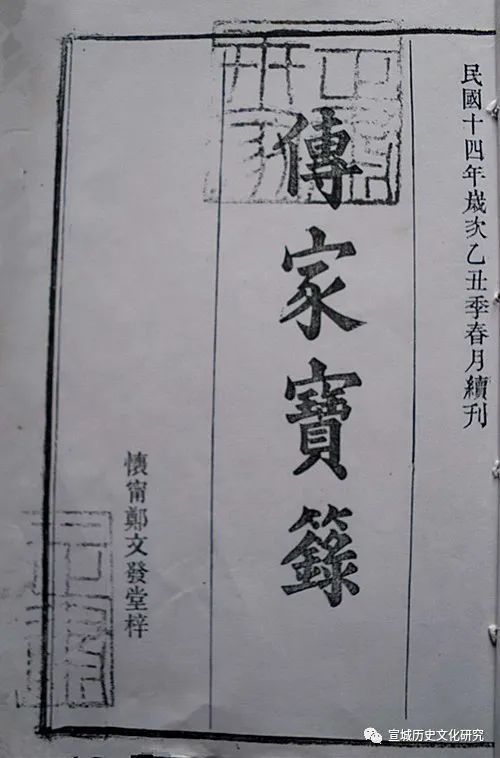 民國十四年歲次乙丑季春月續刊
傳家寶籙
懷甯鄭文發堂梓
宣城历史文化研究